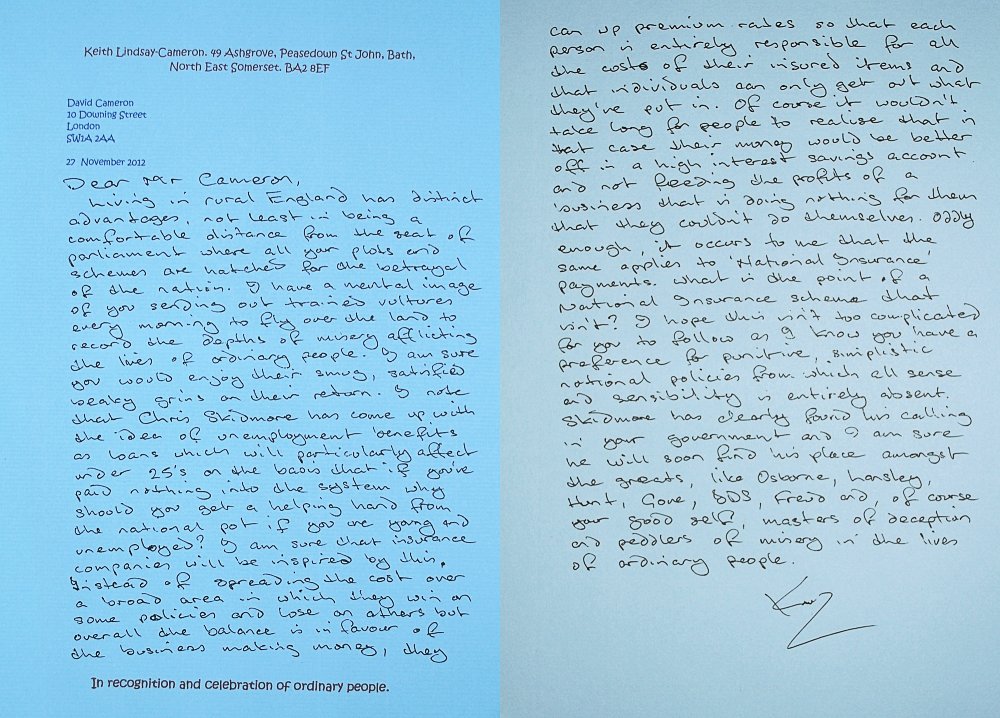 Keith Lindsay-Cameron. 49 Ashgrove, Peasedown St John, Bath,
North East Somerset. BA2 8EF
David Cameron
10 Downing Street
London
SW1A 2AA
27 November 2012
Dear Mr Cameron,
Living in rural England has distinct
advantages, not least in being a
comfortable distance from the seat of
parliament where all your plots and
schemes are hatched for the betrayal
of the nation. I have a mental image
of you sending out trained vultures
every morning to fly over the land to
record the depths of misery afflicting
the lives of ordinary people. I am sure
you would enjoy their smug, satisfied
beaky grins on their return. I note
that Chris Skidmore has come up with
the idea of unemployment benefits
as loans which will particularly affect
under 25's on the basis that if you've
paid nothing into the system why
should you get a helping hand from
the national pot if you are young and
unemployed? I am sure that insurance
companies will be inspired by this.
Instead of spreading the cost over
a broad area in which they win on
some policies and lose on others but
overall the balance is in favour of
the business making money, they
In recognition and celebration of ordinary people.
can up premium rates so that each
person is entirely responsible for all
the costs of their insured items and
that individuals can only get out what
they've put in. Of course it wouldn't
take long for people to realise that in
that case their money would be better
off in a high interest savings account
and not feeding the profits of a
business that is doing nothing for them
that they couldn't do themselves. Oddly
enough, it occurs to me that the
same applies to 'National Insurance'
payments. What is the point of a
National Insurance scheme that
isn't? I hope this isn't too complicated
for you to follow as I know you have a
preference for punitive, simplistic
national policies from which all sense
and sensibility is entirely absent.
Skidmore has clearly found his calling
in your government and I am sure
he will soon find his place amongst
the greats, like Osborne, Lansley,
Hunt, Gove, IDS, Freud and, of course
your good self, masters of deception
and peddlers of misery in the lives
of ordinary people.